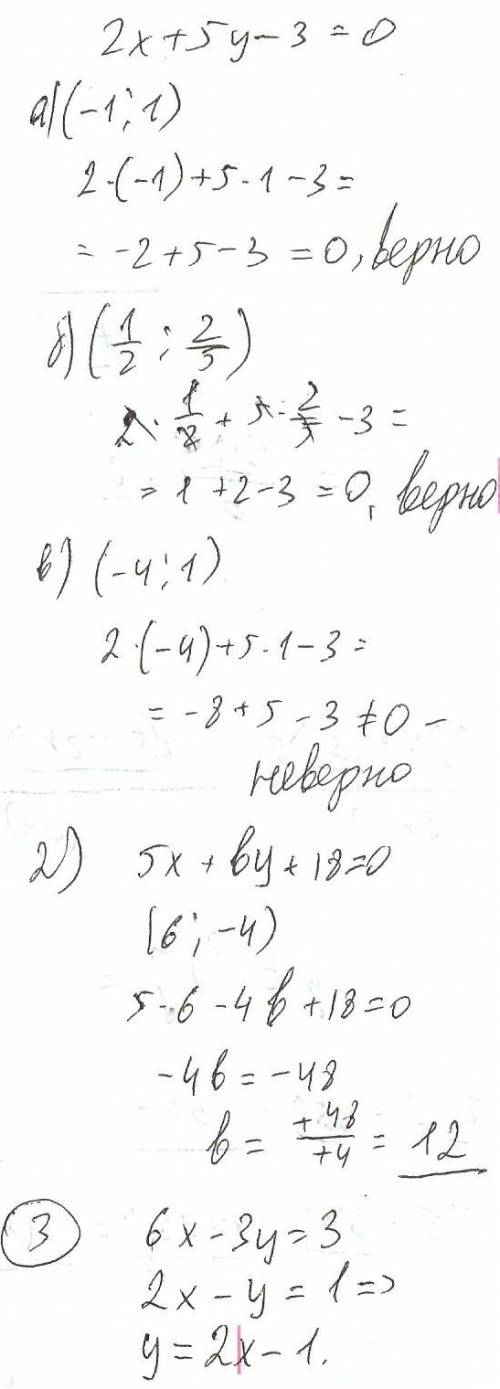 2x+5y-3=0
а) (-1; 1)
2·(-1)+5·1-3=
= -2+5-3 =0, верно
б) (1/2 ; 2/5)
2·1/2 + 5·2/5 -3=
= 1+2-3=0, верно
в) (-4; 1)
2·(-4)+5·1-3=
= -8+5-3≠0 -
неверно
2) 5x+by+18=0
(6; -4)
5·6-4b+18=0
-4b=-48
b= +48/+4 = 12
3 6x-3y=3
2x-y=1=>
y=2x-1.